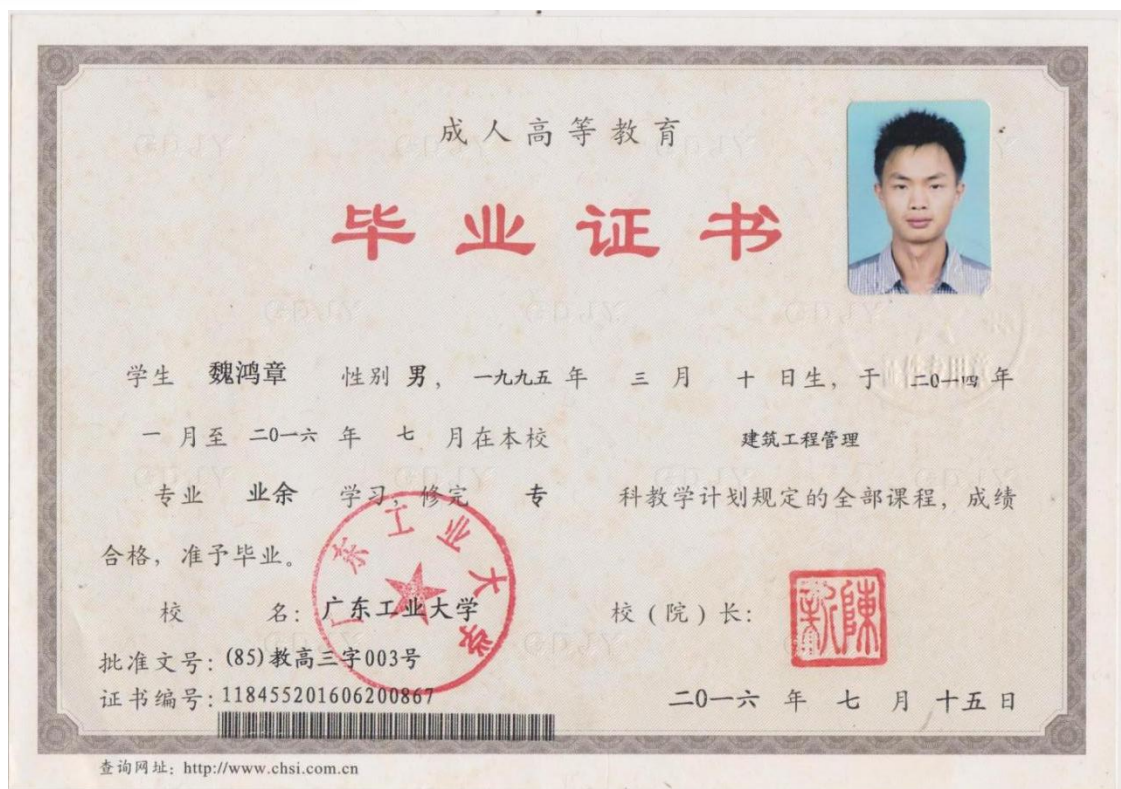 成人高等教育
毕业证书
学生 魏鸿章 性别 男，一九九五 年 三 月 十 日生，于 二0一四 年
一 月至 二0一六 年 七 月在本校 建筑工程管理
专业 业余 学习，修完 专 科教学计划规定的全部课程，成绩
合格，准予毕业。
广东工业大学
校 名：广东工业大学 校（院）长：
陈新
批准文号：(85)教高三字003号
证书编号：118455201606200867 二0一六 年 七 月 十五 日
查询网址：http://www.chsi.com.cn